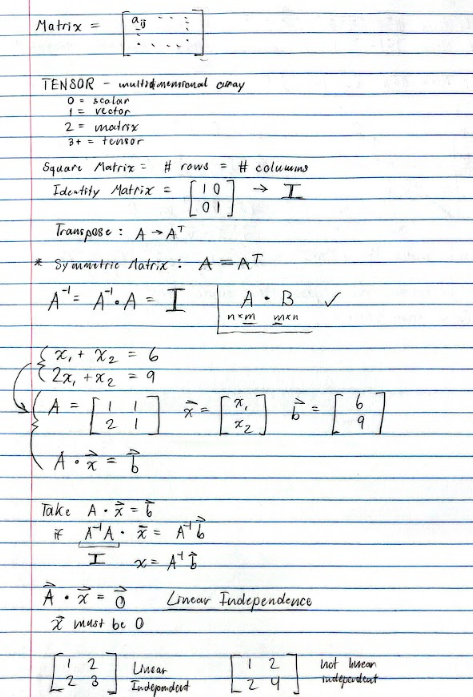 Matrix = [ aij ⋯ ⋮ ⋯ ]
TENSOR - multidimensional array
0 = scalar
1 = vector
2 = matrix
3+ = tensor
Square Matrix = # rows = # columns
Identity Matrix = [1 0; 0 1] → I
Transpose : A → Aᵀ
* Symmetric Matrix : A = Aᵀ
A⁻¹ = A⁻¹ · A = I    A · B ✓
n×m m×n
{ x₁ + x₂ = 6
2x₁ + x₂ = 9
A = [1 1; 2 1]  x⃗ = [x₁; x₂]  b⃗ = [6; 9]
A · x⃗ = b⃗
Take A · x⃗ = b⃗
if A⁻¹A · x⃗ = A⁻¹b⃗
I    x = A⁻¹b⃗
A⃗ · x⃗ = 0⃗    Linear Independence
x⃗ must be 0
[1 2; 2 3] Linear Independent    [1 2; 2 4] not linear independent